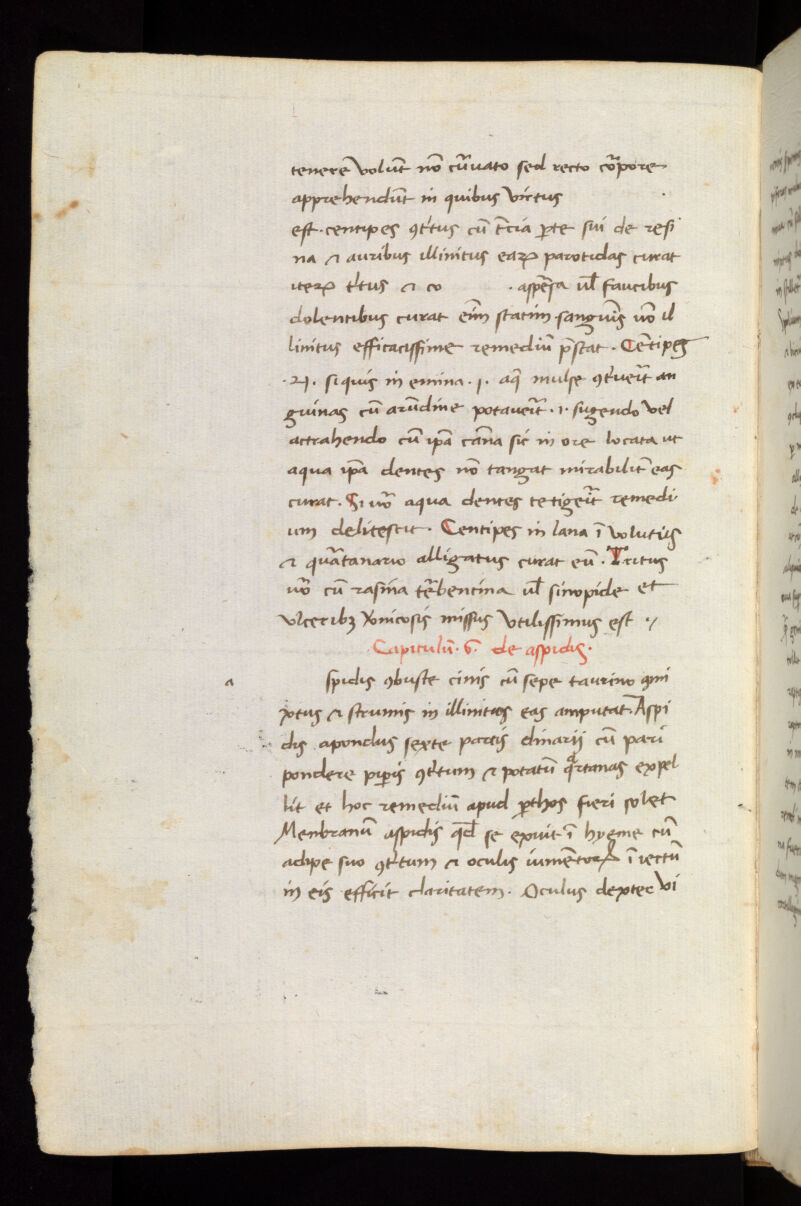 tenerē volūt nō cūruato sed recto cōrpore
apprehendūt in quibus virtus
est. centipes ꝯt̄tus cū t̄cia ꝑte sui de resi
na ⁊ auribus illinitus earꝝ parotidas curat
iterꝝ t̄tus ⁊ co . asꝑa ul̄ faucibus
dolentibus curat eīm statim. sanguīs uō il
linitus efficacissime remediū p̄stat. Cētipes
.21. si quis in emina .i. aq̄ mulse ꝯt̄uerit an
guinas cū arūdine potauerit .i. sugendo vel
attrahendo cū ip̄a cāna sic in ore locata ut
aqua ip̄a dentes nō tangat mirabilit̄ eas
curat. Si uō aqua dentes tetigerit remedi
um delitescit. Centipes in lana ī volutus
⁊ quārtanario alligatus curat eū. Tritus
uō cū rasina t̄rbentina ul̄ sinopide et
vlceribꝫ xonicosis missus vtilissimus est
Capitulū. 6. de aspidis.
a spidis ꝯbuste cinis cū sepe taurino ꝯmi
xtus ⁊ strumis in illinitus eas amputat. Aspi
dis apondus sexte partis dinarij cū pari
pondere pip̄is ꝯt̄tum ⁊ potatū q̄rtanas expel
lit et hoc remediū apud ꝑthos fieri solet
Menbranū aspidis qd̄ se exuit ī hyeme cū
adipe suo ꝯt̄tum ⁊ oculis iumētorꝝ ī iectū
in eis efficit claritatem. Oculus dexter vi